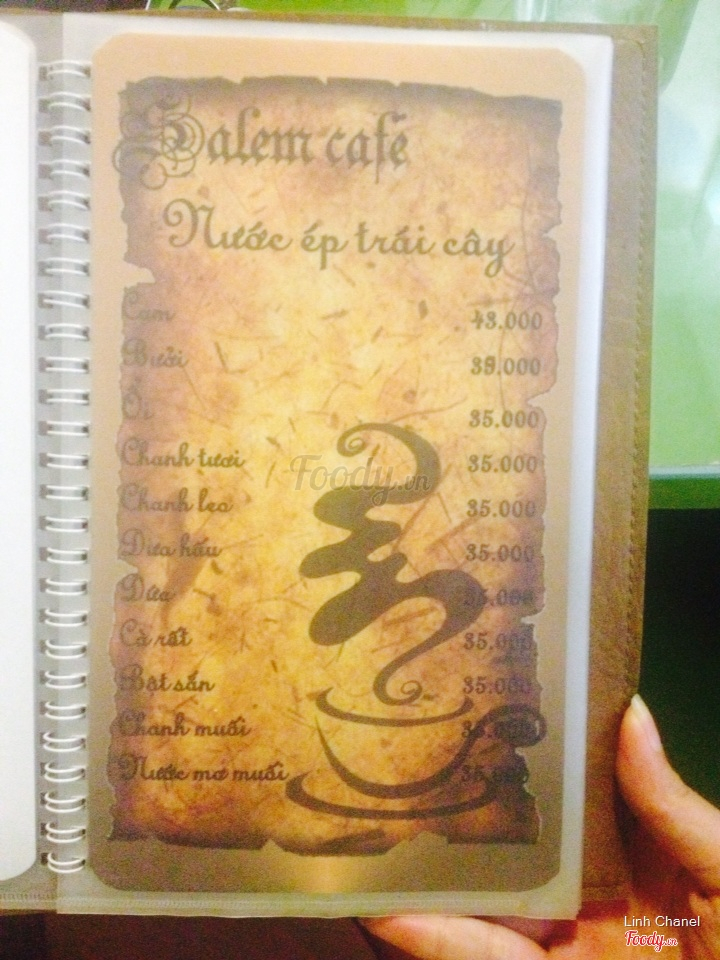 Salem café
Nước ép trái cây
Cam 43.000
Bưởi
Ổi 35.000
Chanh tươi 35.000
Foody.vn
Chanh leo 35.000
Dưa hấu 35.000
Dứa 35.000
Cà rốt 35.000
Bột sắn 35.000
Chanh muối 35.000
Nước mơ muối 35.000
Linh Chanel
Foody.vn